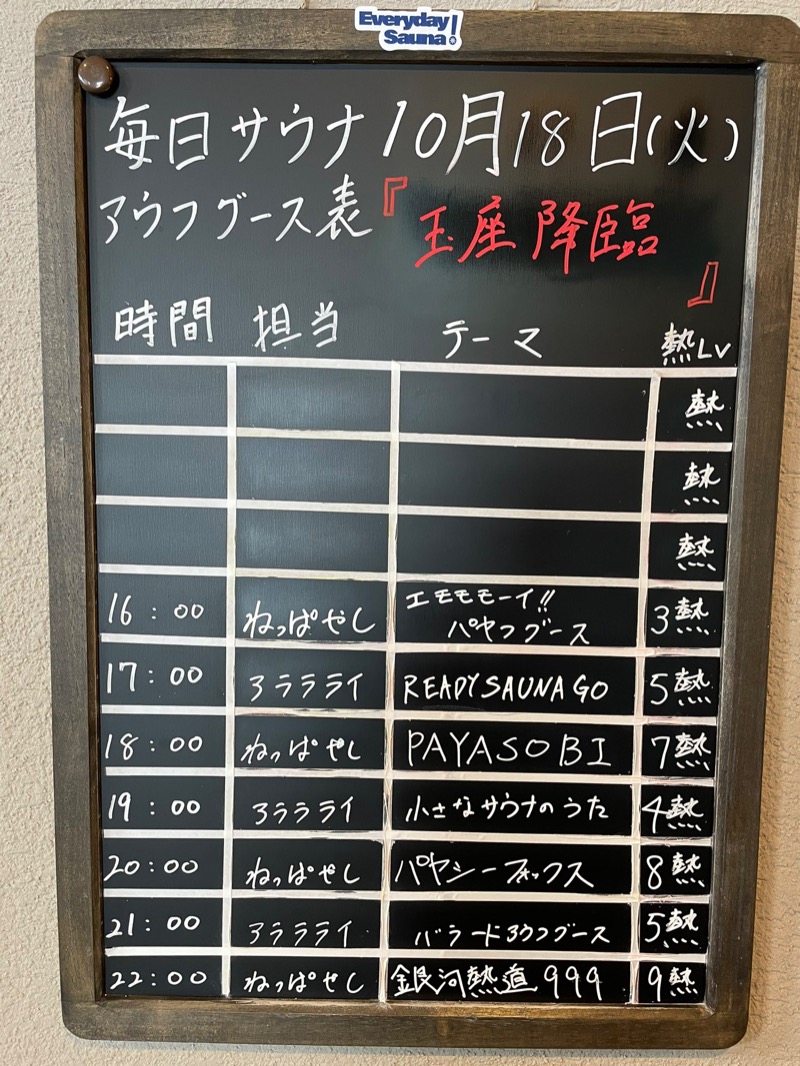 Everyday
Sauna!
毎日サウナ10月18日(火)
アウフグース表『玉座降臨』
時間 担当 テーマ 熱Lv
熱
熱
熱
16:00 ねっぱやし エモモモーイ!! 3熱
パヤフグース
17:00 アララライ READY SAUNA GO 5熱
18:00 ねっぱやし PAYASOBI 7熱
19:00 アララライ 小さなサウナのうた 4熱
20:00 ねっぱやし パヤシーフォックス 8熱
21:00 アララライ バラードアウフグース 5熱
22:00 ねっぱやし 銀河熱道999 9熱